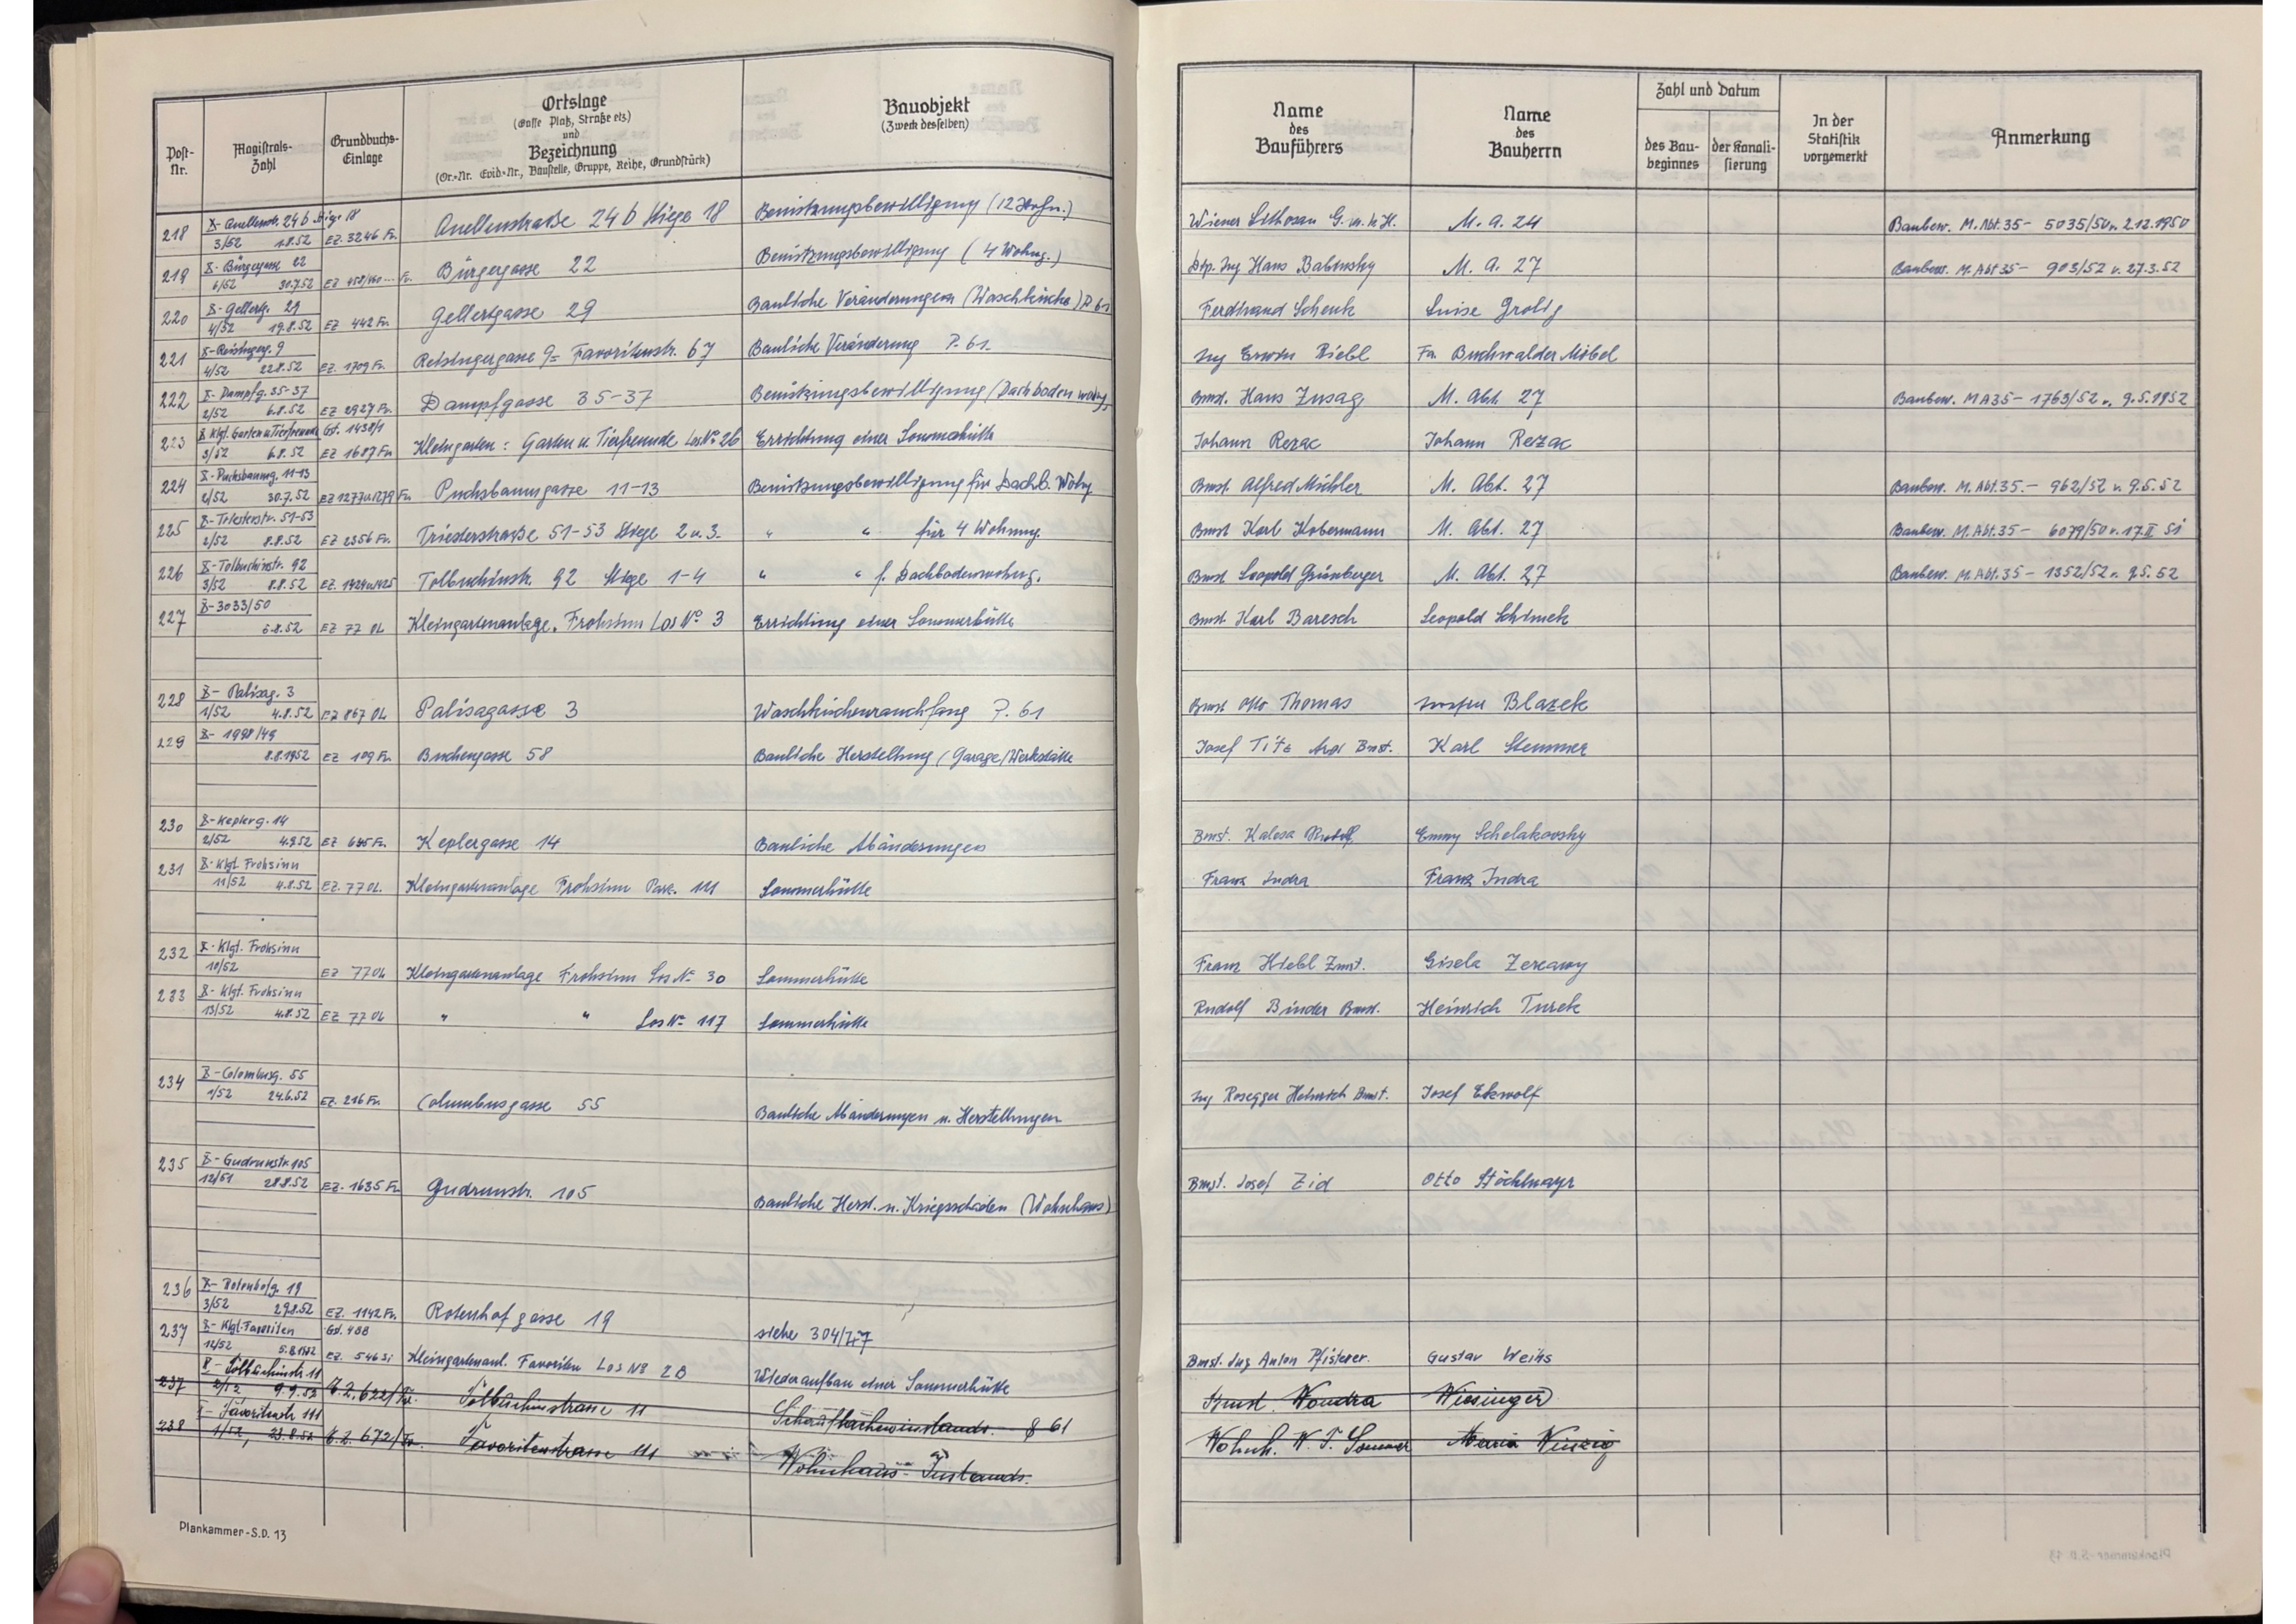 Post-Nr.
Magistrats-Zahl
Grundbuchs-Einlage
Ortslage
(Gasse Platz, Straße etz.)
und
Bezeichnung
(Or.=Nr. Evid=Nr., Baustelle, Gruppe, Reihe, Grundstück)
Bauobjekt
(Zweck desselben)
Name
des
Bauführers
Name
des
Bauherrn
Zahl und Datum
des Bau-
beginnes
der Kanali-
sierung
In der
Statistik
vorgemerkt
Anmerkung
218 X- Quellenstr. 24b Stiege 18
3/52 1.8.52 EZ. 3246 Fv. Quellenstraße 24 b Stiege 18 Benützungsbewilligung (12 Wohn.) Wiener G.m.b.H. M. A. 24 Baubew. M. Abt. 35- 5035/50 v. 2.12.1950
219 X- Bürgergasse 22
6/52 30.7.52 EZ Bürgergasse 22 Benützungsbewilligung (4 Wohng.) Dip. Ing Hans Babinsky M. A. 27 Baubew. M. Abt 35- 903/52 v. 27.3.52
220 X- Gellertg. 29
4/52 19.8.52 EZ 442 Fv. Gellertgasse 29 Bauliche Veränderungen (Waschküche) P. 61 Ferdinand Schenk Luise Grolig
221 X- Reisingerg. 9
4/52 22.8.52 EZ. 1709 Fv. Reisingergasse 9= Favoritenstr. 67 Bauliche Veränderung P. 61. Ing Erwin Riebl Fa. Buchwalder Möbel
222 X- Dampfg. 35-37
2/52 6.8.52 EZ 2927 Fv. Dampfgasse 35-37 Benützungsbewilligung (Dachbodenwohng. Bmst. Hans Zusag M. Abt. 27 Baubew. MA35- 1763/52 v. 9.5.1952
223 X Klgt. Garten u Tierfreunde Gst. 1438/1
3/52 6.8.52 EZ 1687 Fv. Kleingarten: Garten u. Tierfreunde Los No 26 Errichtung einer Sommerhütte Johann Rezac Johann Rezac
224 X- Puchsbaumg. 11-13
2/52 30.7.52 EZ 1277u1279 Fv. Puchsbaumgasse 11-13 Benützungsbewilligung für Dachb. Wohng Bmst Alfred Michler M. Abt. 27 Baubew. M. Abt. 35.- 962/52 v. 9.5.52
225 X- Triesterstr. 51-53
2/52 8.8.52 EZ 2356 Fv. Triesterstraße 51-53 Stiege 2 u. 3. " " für 4 Wohnung. Bmst Karl Kobermann M. Abt. 27 Baubew. M. Abt. 35- 6079/50 v. 17.II 51
226 X- Tolbuchinstr. 92
3/52 8.8.52 EZ. 1424u1425 Tolbuchinstr. 92 Stiege 1-4 " " f. Dachbodenwohng. Bmst Leopold Grünberger M. Abt. 27 Baubew. M. Abt. 35- 1352/52 v. 9.5.52
227 X- 3033/50
6.8.52 EZ 77 OL Kleingartenanlage. Frohsinn Los No 3 Errichtung einer Sommerhütte Bmst Karl Baresch Leopold Schimek
228 X- Palisag. 3
1/52 4.8.52 EZ 867 OL Palisagasse 3 Waschküchenrauchfang P. 61 Bmst Otto Thomas Josefa Blazek
229 X- 1998/49
8.8.1952 EZ 109 Fv. Buchengasse 58 Bauliche Herstellung (Garage/Werkstätte Josef Titz Arch Bmst. Karl Stemmer
230 X- Keplerg. 14
2/52 4.9.52 EZ 645 Fv. Keplergasse 14 Bauliche Abänderungen Bmst. Kalesa Rudolf Emmy Schelakovsky
231 X- Klgt. Frohsinn
11/52 4.8.52 EZ. 77 OL. Kleingartenanlage Frohsinn Parz. 111 Sommerhütte Franz Indra Franz Indra
232 X- Klgt. Frohsinn
10/52 EZ 77 OL Kleingartenanlage Frohsinn Los No 30 Sommerhütte Franz Hiebl Zmst. Gisela Zerzawy
233 X- Klgt. Frohsinn
13/52 4.8.52 EZ 77 OL " " Los No 117 Sommerhütte Rudolf Binder Bmst. Heinrich Turek
234 X- Columbusg. 55
1/52 24.6.52 EZ. 216 Fv. Columbusgasse 55 Bauliche Abänderungen u. Herstellungen Ing Rosegger Heinrich Bmst. Josef Ekwolf
235 X- Gudrunstr. 105
12/51 28.8.52 EZ. 1635 Fv Gudrunstr. 105 Bauliche Herst. u. Kriegsschäden (Wohnhaus) Bmst. Josef Zid Otto Stöchlmayr
236 X- Rotenhofg. 19
3/52 29.8.52 EZ. 1142 Fv. Rotenhofgasse 19 siehe 304/
237 X- Klgt. Favoriten Gst. 488
12/52 5.8.1952 EZ. 546 Si Kleingartenanl. Favoriten Los No 2B Wiederaufbau einer Sommerhütte Bmst. Ing Anton Pfisterer Gustav Weihs
237 X- Tolbuchinstr. 11
2/52 9.9.52 E.Z. 622/Fv. Tolbuchinstrasse 11 § 61 Bmst. Wondra Wiesinger
238 X- Favoritenstr. 111
1/52, 23.8.52 E.Z. 672/Fv. Favoritenstrasse 111 Wohnhaus- Instands. Wohnh. W. J. Sommer Maria Winzig
Plankammer-S.D. 13